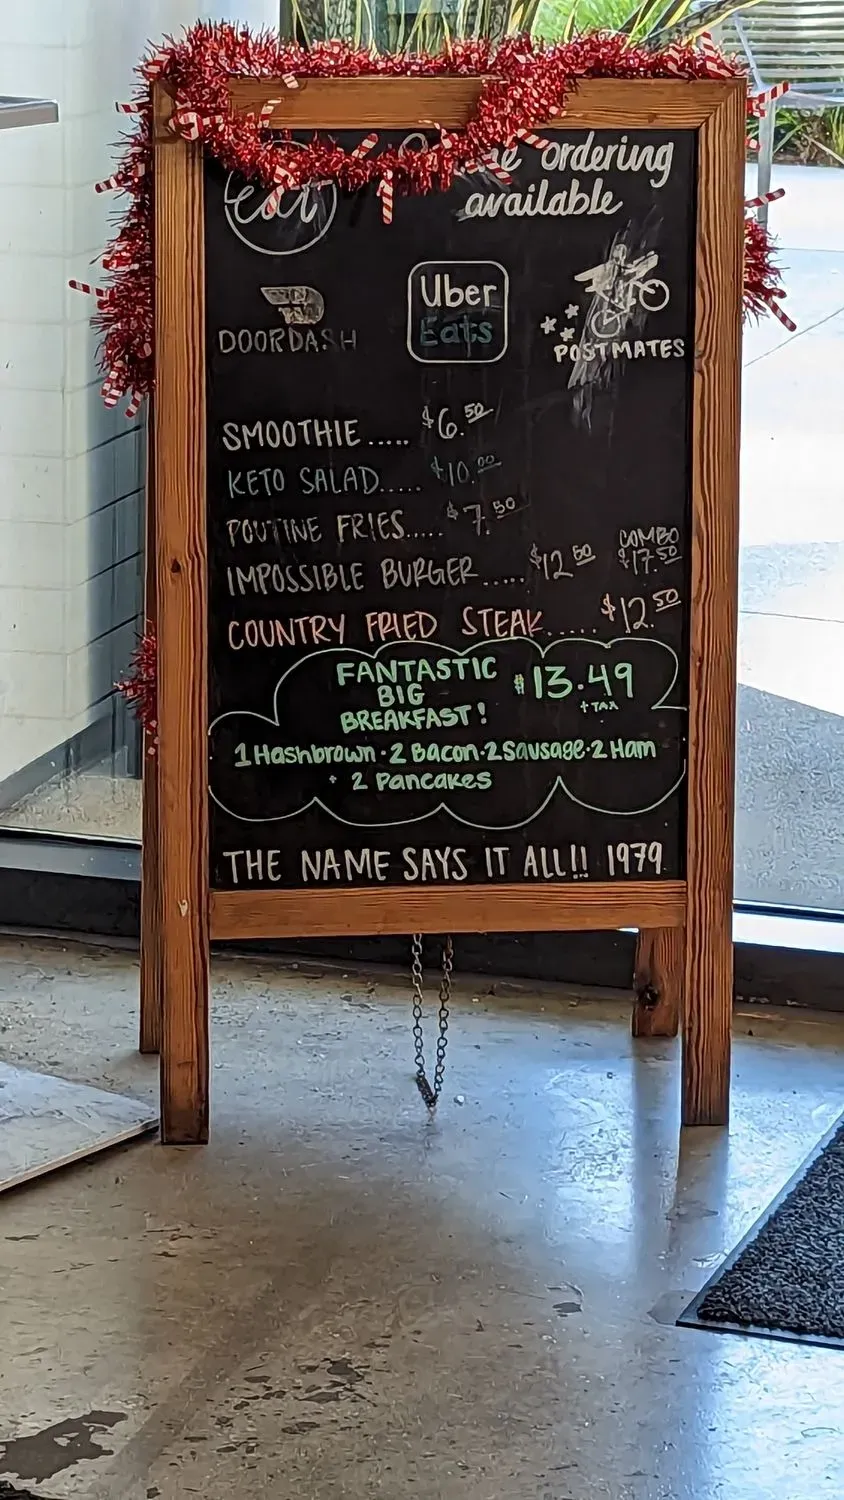 eat
ordering
available
DOORDASH
Uber
Eats
POSTMATES
SMOOTHIE..... $6.50
KETO SALAD..... $10.00
POUTINE FRIES..... $7.50
COMBO
IMPOSSIBLE BURGER..... $12.50 $17.50
COUNTRY FRIED STEAK..... $12.50
FANTASTIC $13.49
BIG + TAX
BREAKFAST!
1 Hashbrown · 2 Bacon · 2 Sausage · 2 Ham
· 2 Pancakes
THE NAME SAYS IT ALL!! 1979